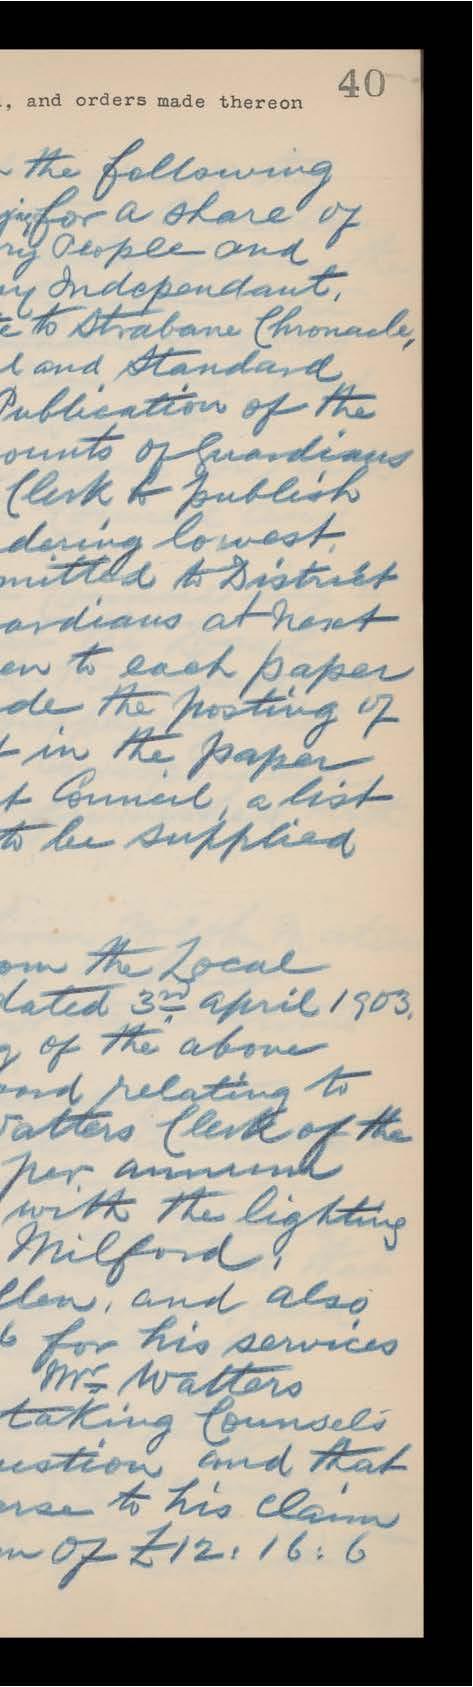 40
, and orders made thereon
the following
for a share of
People and
Independant,
to Strabane Chronacle,
and Standard
Publication of the
ounts of Guardians
Clerk to publish
dering lowest.
mitted to District
ardians at next
en to each paper
de the posting of
t in the paper
t Council, a list
to be supplied
om the Local
dated 3rd April 1903.
g of the above
relating to
Watters Clerk of the
per annum
with the lighting
Milford,
llen, and also
6 for his services
Mr. Watters
taking Counsel's
uestion and that
erse to his claim
m of £12:16:6